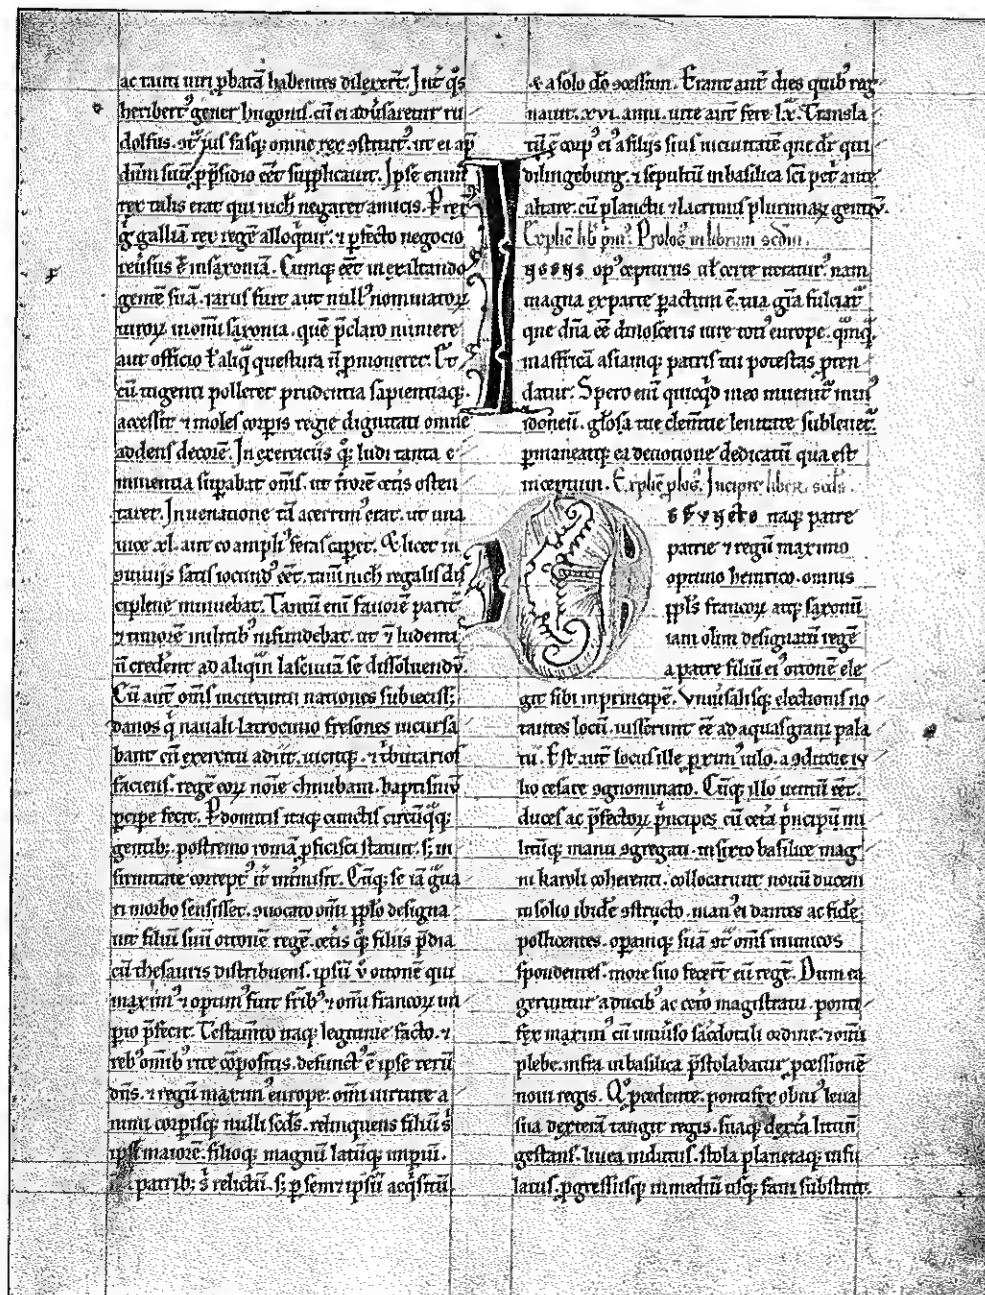 ac tanti uiri ꝓbatā habentes dilexer̄t. Int̄ q̄s
heribert᷒ gener hugonis. cū ei aduͥsaretur ru
dolfus. ꝯt᷑ ius fasq; omne rex ꝯstruit. ut ei ap
dn̄m suū p̄sidio eēt supplicauit. Ipse enim
rex talis erat qui nich̄ negaret amicis. ꝑrex
g̊ galliā rex regē alloq̇tur. ⁊ ꝑfecto negocio
reuersus ē in saxoniā. Cumq; eēt in exaltando
gente sua. rarus fuit aut null᷒ nominatoꝝ
uiroꝝ in omni saxonia. quē p̄claro munere
aut officio ł aliq̄ questura n̄ ꝓmoueret. Et
cū ingenti polleret prudentia sapientiaq;
accessit ⁊ moles corꝑis regie dignitati omnē
addens decorē. In exerciciis q̊ꝫ ludi tanta e
minentia suꝑabat om̄s. ut t̄rorē cet̄is osten
taret. In uenatione tā acerrim᷒ erat. ut una
uice .xl. aut eo ampli᷒ feras caꝑet. & licet in
ꝯuiuijs satis iocund᷒ eēt. tam̄ nich̄ regalis dis
cipline minuebat. Tantū eni fauorē parit᷑
⁊ timorē militib᷒ infundebat. ut ⁊ ludenti
n̄ crederent ad aliq̄m lasciuiā se dissoluendū.
Cū aut̄ om̄s in circuitu nationes subiecisset
danos q̇ nauali latrocinio fresones incursa
bant cū exercitu adiit. uicitq;. ⁊ tributarios
faciens. regē eoꝝ noīe chnubam. baptismū
ꝑcipe fecit. ꝑdomitis itaq; cunctis circūq̄q;
gentib; postremo romā ꝓficisci statuit. s; in
firmitate corrept᷒ it̄ intermisit. Cūq; se iā g̊ua
ri morbo sensisset. ꝯuocato om̄i pplo designa
uit filiū suū ottonē regē. cet̄is q̊ꝫ filiis p̄dia
cū thesauris distribuens. ipsū v̊ ottonē qui
maxim᷒ ⁊ optim᷒ fuit fr̄ib᷒ ⁊ om̄i francoꝝ im
pio p̄fecit. Testam̄to itaq; legitime facto. ⁊
reb᷒ omīb᷒ rite cōpositis. defunct᷒ ē ipse rerū
dn̄s. ⁊ regū maxim᷒ europe. om̄i uirtute a
nimi corꝑisq; nulli scd̄s. relinquens filiū s̄
ipso maiorē. filioq; magnū latūq; imꝑiū.
n̄ a patrib; s̄ relictū. s; ꝑ semet ipsū acq̇sitū
& a solo dō ꝯcessum. Erant aut̄ dies quib᷒ reg
nauit .xvi. anni. uite aut̄ fere .lx. Transla
tū ē corp᷒ ei᷒ a filijs suis in ciuitatē que dr̄ qui
dilingeburg. ⁊ sepultū in basilica sc̄i petri ante
altare. cū planctu ⁊ lacrimis plurimaꝝ gentiū.
Explic̄ lib̄ pm᷒. Prolog᷒ in librum scd̄m.
Iꝯgens op᷒ cepturus uł certe iteratur᷒ nam
magna ex parte ꝑactum ē. tua gr̄a fulciar
que dn̄a eē dinosceris iure toti᷒ europe. quāq̄
in affricā asiamq; patris tui potestas ꝓten
datur. Spero eni quicq̇d meo inuenit᷑ min᷒
idoneū. gl̄osa tue clem̄tie lenitate subleuet᷑.
ꝑmaneatq; ea deuotione dedicatū qua est
inceptum. Explic̄ plog᷒. Incipit liber scd̄s.
Defuncto itaq; patre
patrie ⁊ regū maximo
optimo henrico. omnis
ppl̄s francoꝝ atq; saxonū
iam olim designatū regē
a patre filiū ei᷒ ottonē ele
git sibi in principē. Vniuͥsalisq; electionis no
tantes locū. iusserunt eē ad aquasgrani pala
tii. Est aut̄ locus ille ꝓxim᷒ iulo. a ꝯditore iu
lio cesare ꝯgnominato. Cūq; illo uentū eēt.
duces ac p̄fectoꝝ p̄ncipes cū cet̄a p̄ncipū mi
litūq; manu ꝯgregati. in sixto basilice mag
ni karoli coherenti. collocarunt nouū ducem
in solio ibidē ꝯstructo. man᷒ ei dantes ac fidē
pollicentes. oꝑamq; suā ꝯt᷑ om̄s inimicos
spondentes. more suo fecer̄t eū regē. Dum ea
geruntur a ducib᷒ ac cet̄o magistratu. ponti
fex maxim᷒ cū uniuͥso sac̄dotali ordine. ⁊ omī
plebe. infra in basilica p̄stolabatur ꝓcessionē
noui regis. Q̊ ꝓcedente. pontifex obui᷒ leua
sua dexterā tangit regis. suaq; dext̄a lituū
gestans. linea indutus. stola planetaq; infu
latus. ꝓgressusq; in mediū usq; fani substitit.